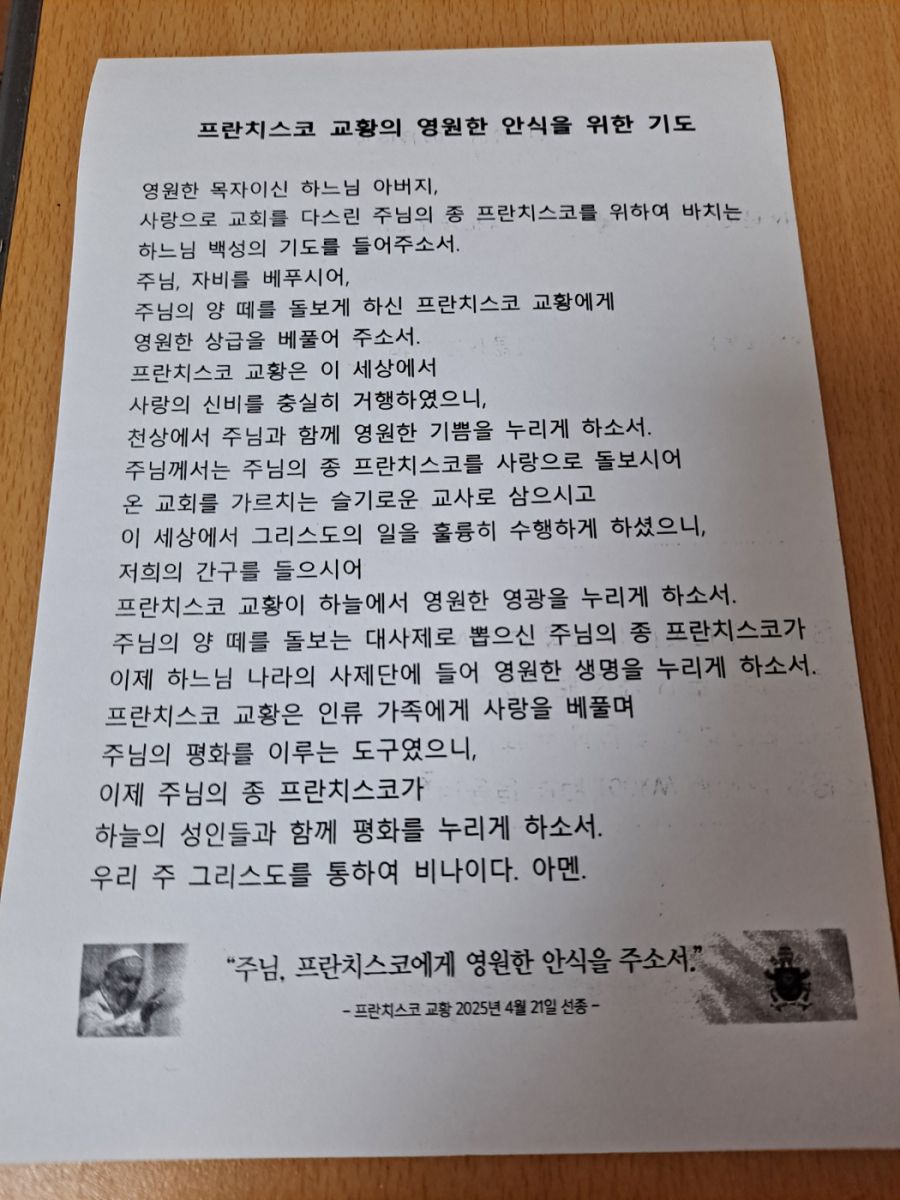 프란치스코 교황의 영원한 안식을 위한 기도
영원한 목자이신 하느님 아버지,
사랑으로 교회를 다스린 주님의 종 프란치스코를 위하여 바치는
하느님 백성의 기도를 들어주소서.
주님, 자비를 베푸시어,
주님의 양 떼를 돌보게 하신 프란치스코 교황에게
영원한 상급을 베풀어 주소서.
프란치스코 교황은 이 세상에서
사랑의 신비를 충실히 거행하였으니,
천상에서 주님과 함께 영원한 기쁨을 누리게 하소서.
주님께서는 주님의 종 프란치스코를 사랑으로 돌보시어
온 교회를 가르치는 슬기로운 교사로 삼으시고
이 세상에서 그리스도의 일을 훌륭히 수행하게 하셨으니,
저희의 간구를 들으시어
프란치스코 교황이 하늘에서 영원한 영광을 누리게 하소서.
주님의 양 떼를 돌보는 대사제로 뽑으신 주님의 종 프란치스코가
이제 하느님 나라의 사제단에 들어 영원한 생명을 누리게 하소서.
프란치스코 교황은 인류 가족에게 사랑을 베풀며
주님의 평화를 이루는 도구였으니,
이제 주님의 종 프란치스코가
하늘의 성인들과 함께 평화를 누리게 하소서.
우리 주 그리스도를 통하여 비나이다. 아멘.
“주님, 프란치스코에게 영원한 안식을 주소서.”
– 프란치스코 교황 2025년 4월 21일 선종 –